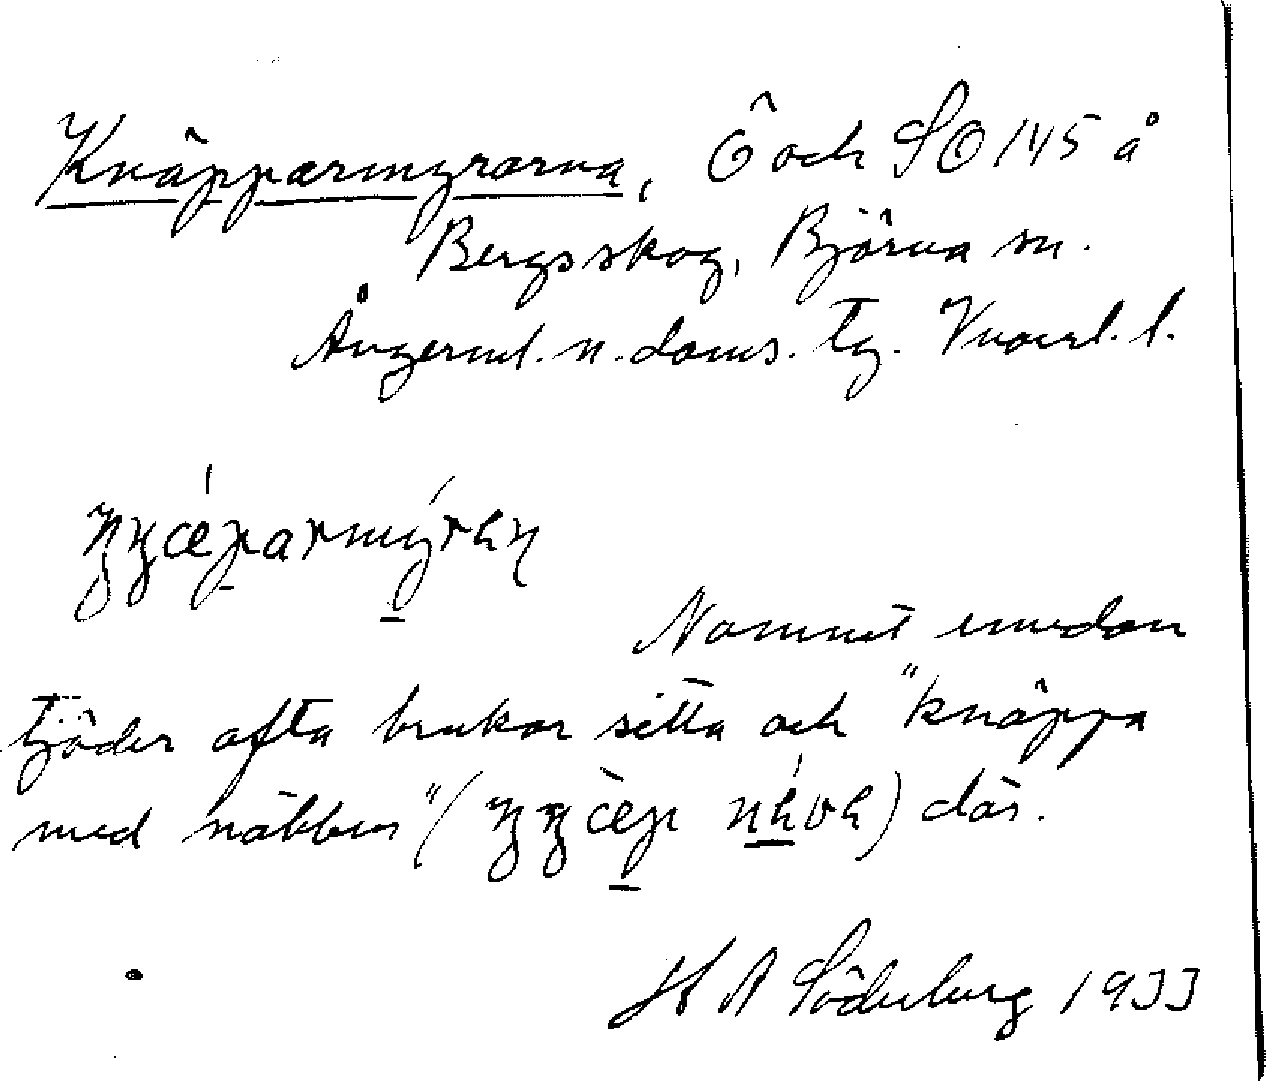 Knäpparmyrarna, Ö och SO 145 å
Bergsskog, Björna sn.
Ångerml. n. doms. tg. Vnorrl. l.
Namnet emedan
tjäder ofta brukar sitta och "knäppa
med näbben" ( ) där.
H A Söderberg 1933